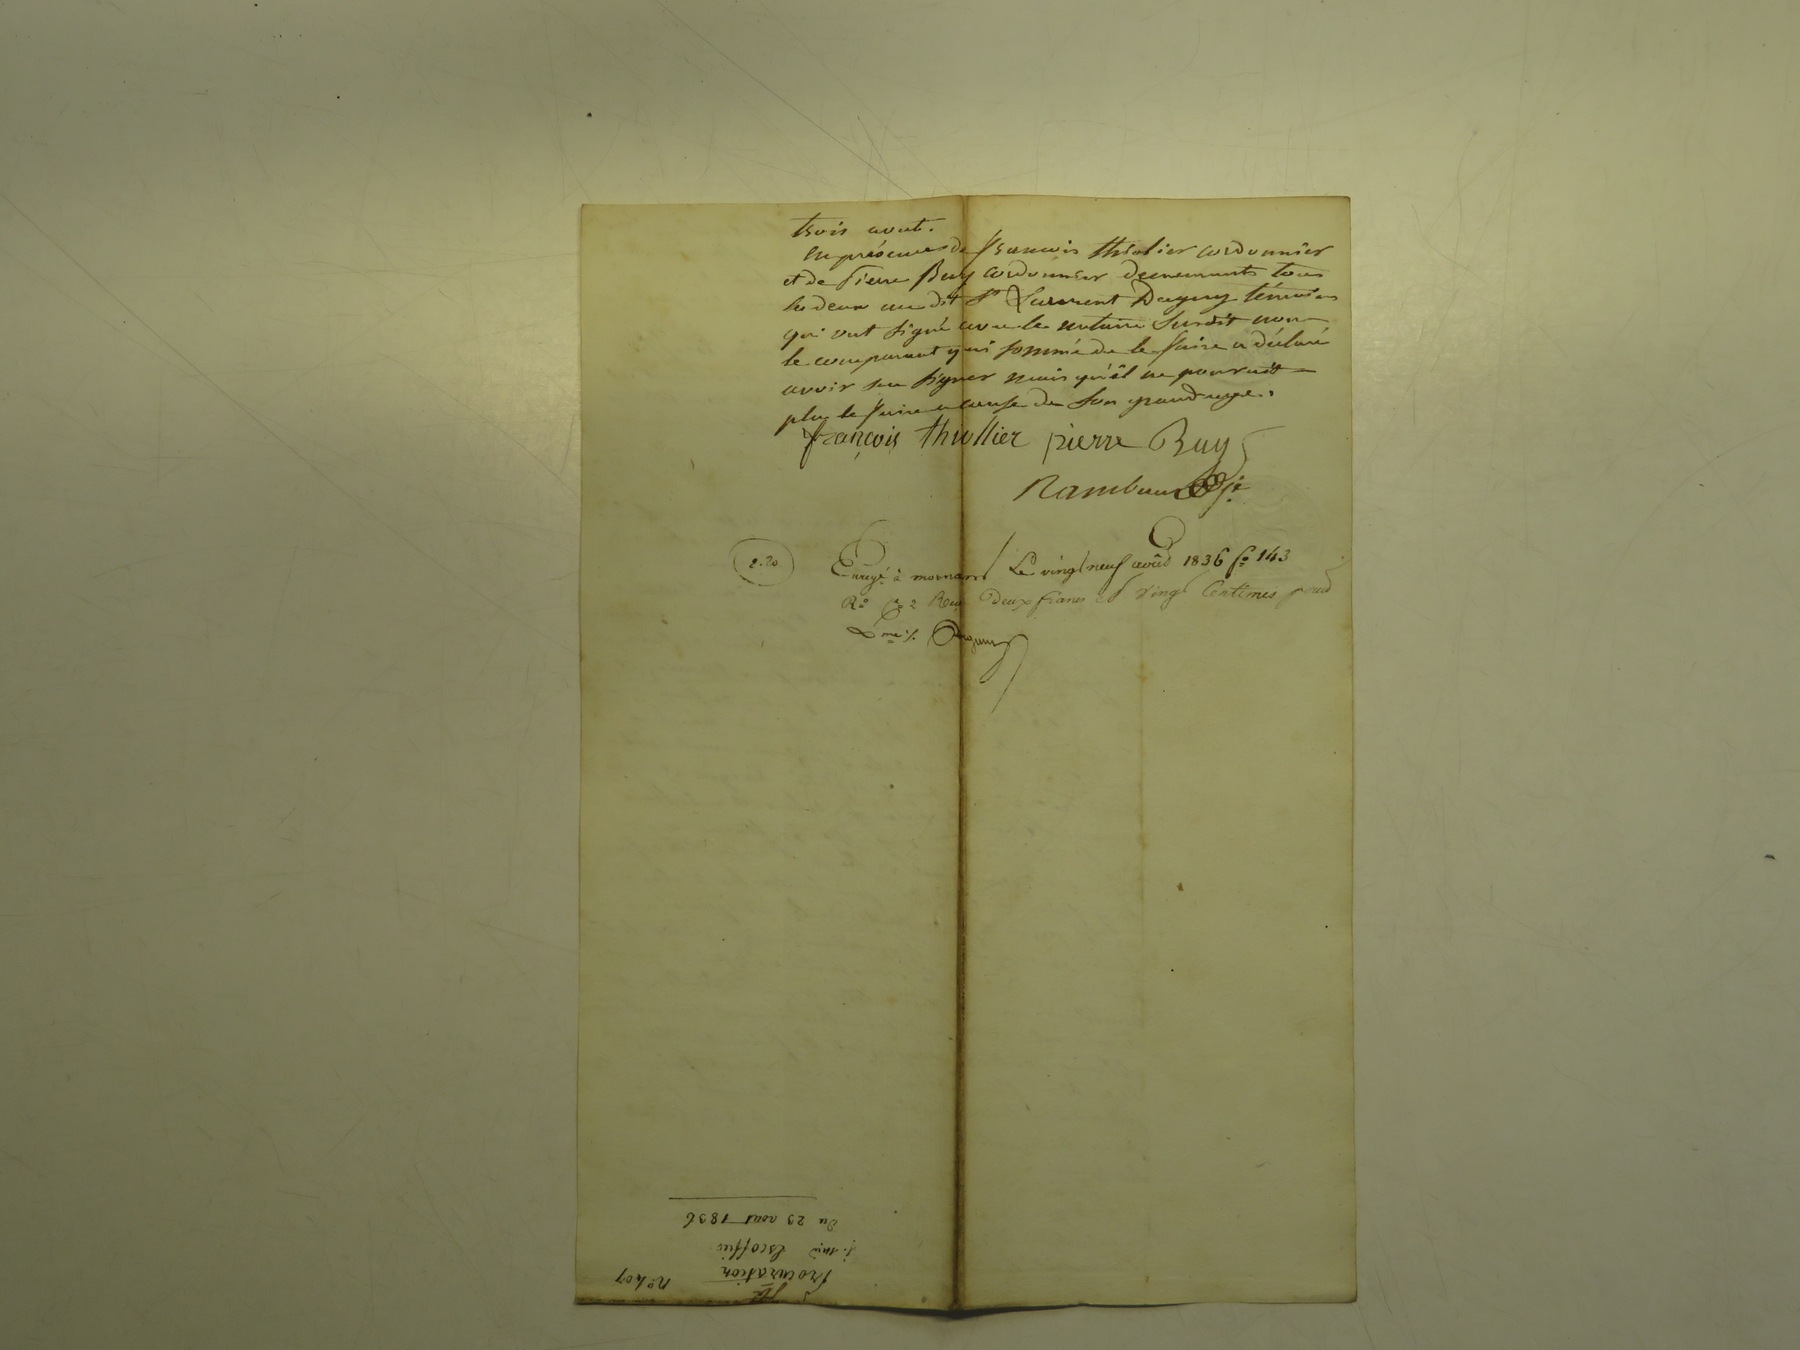 trois aout.
En présence de francois thiollier cordonnier
et de Pierre Buy cordonnier demeurants tous
les deux au dit St Laurent Dagny témoins
qui ont signé avec le notaire susdit non
le comparant qui sommé de le faire a déclaré
avoir su signer mais qu'il ne pourroit
plus le faire a cause de son grand age.
françois thiollier pierre Buy
Rambaud
2.20
Enregé à mornant Le vingt neuf août 1836 fo 143
Ro Co 2 Reçu deux francs et vingt Centimes pour
Dme
No 407
Procuration
Escoffier
Du 23 aout 1836